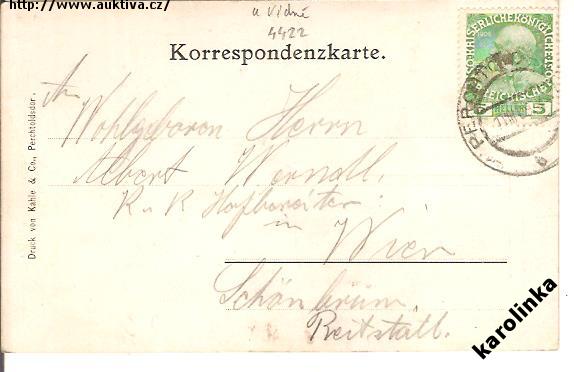 http://www.auktiva.cz/
u Vídně
4422
Korrespondenzkarte.
An
Wohlgeboren Herrn
Albert
K u K Hofbereiter
in
Wien
Schönbrunn
Reitstall.
Druck von Kahle & Co., Perchtoldsdorf.
KAISERLICHE KÖNIGLICHE
1908
5 HELLER 5
karolinka